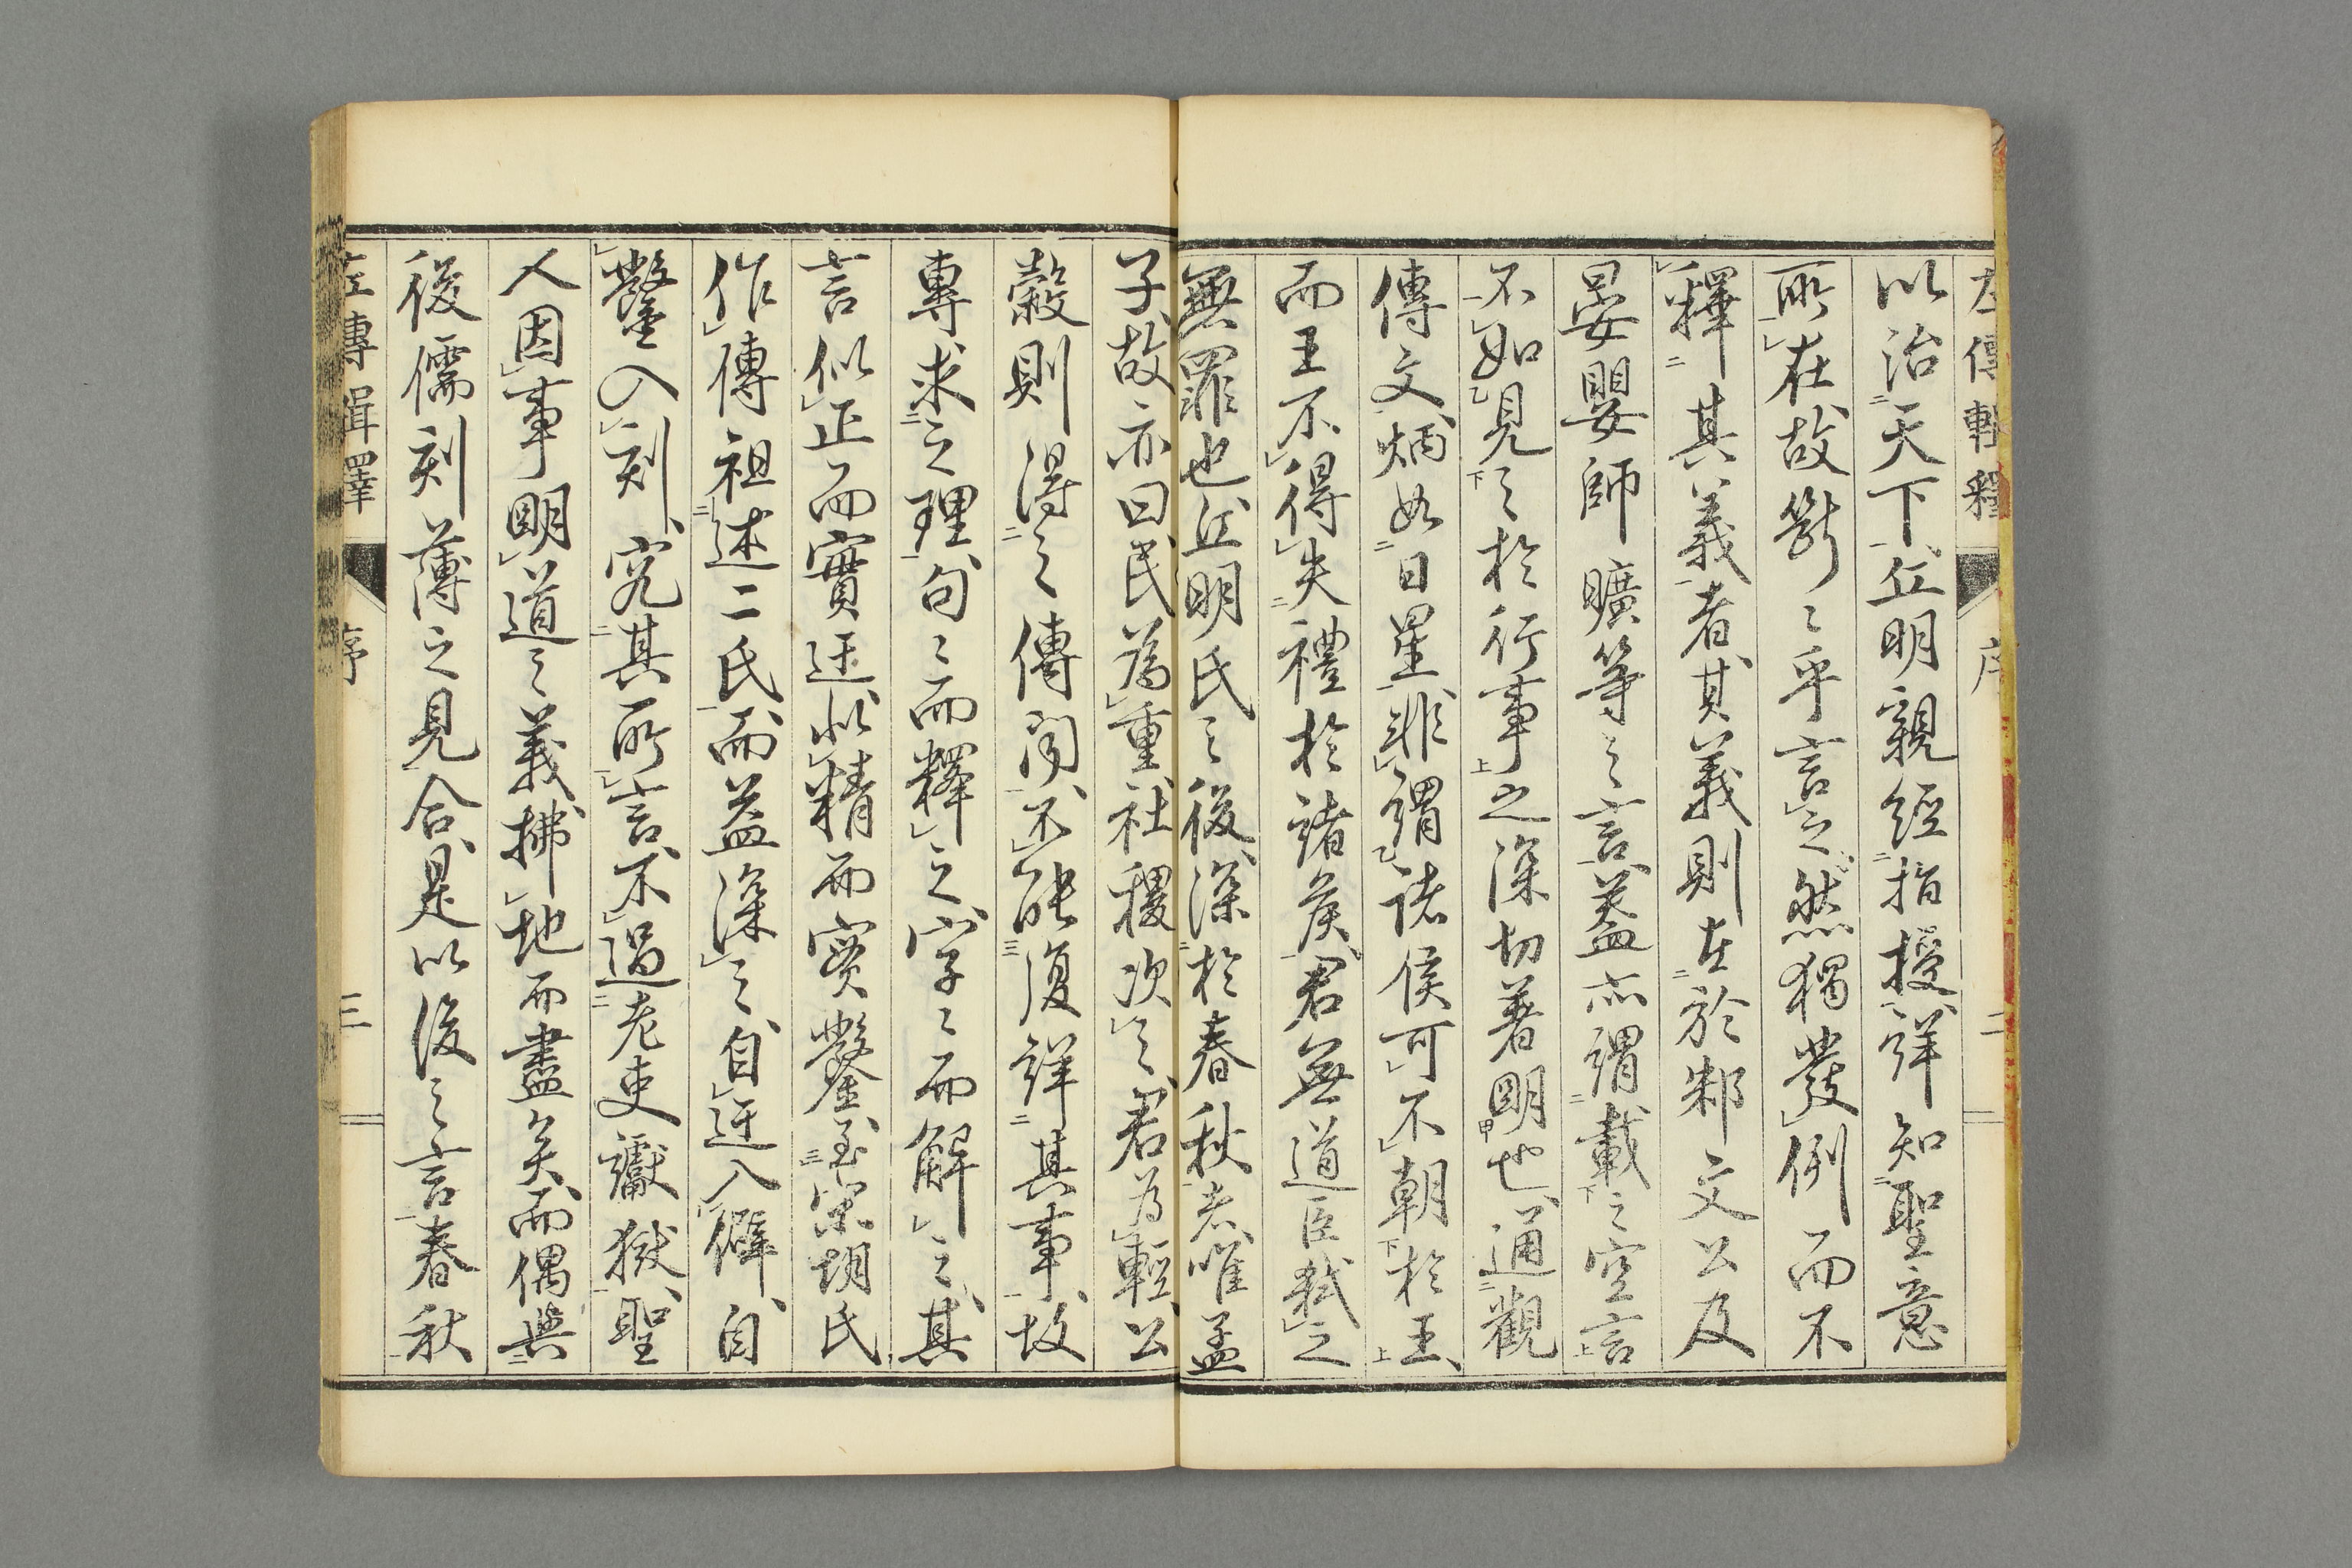 左傳輯釋 序 二
以治天下丘明親經指授詳知聖意
所在故斷〻乎言之然獨發例而不
釋其義者其義則在於邾文公及
晏嬰師曠等之言蓋亦謂載之空言
不如見之於行事之深切著明也通觀
傳文炳如日星非謂諸侯可不朝於王
而王不得失禮於諸侯君無道臣弒之
無罪也丘明氏之後深於春秋者唯孟
子故亦曰民為重社稷次之君為輕公
穀則得之傳聞不能復詳其事故
專求之理句〻而釋之字〻而解之其
言似正而實迂似精而實鑿至宋胡氏
作傳祖述二氏而益深之自迂入僻自
鑿入刻究其所言不過老吏讞獄聖
人因事明道之義拂地而盡矣而偶與
後儒刻薄之見合是以後之言春秋
左傳輯釋 序 三